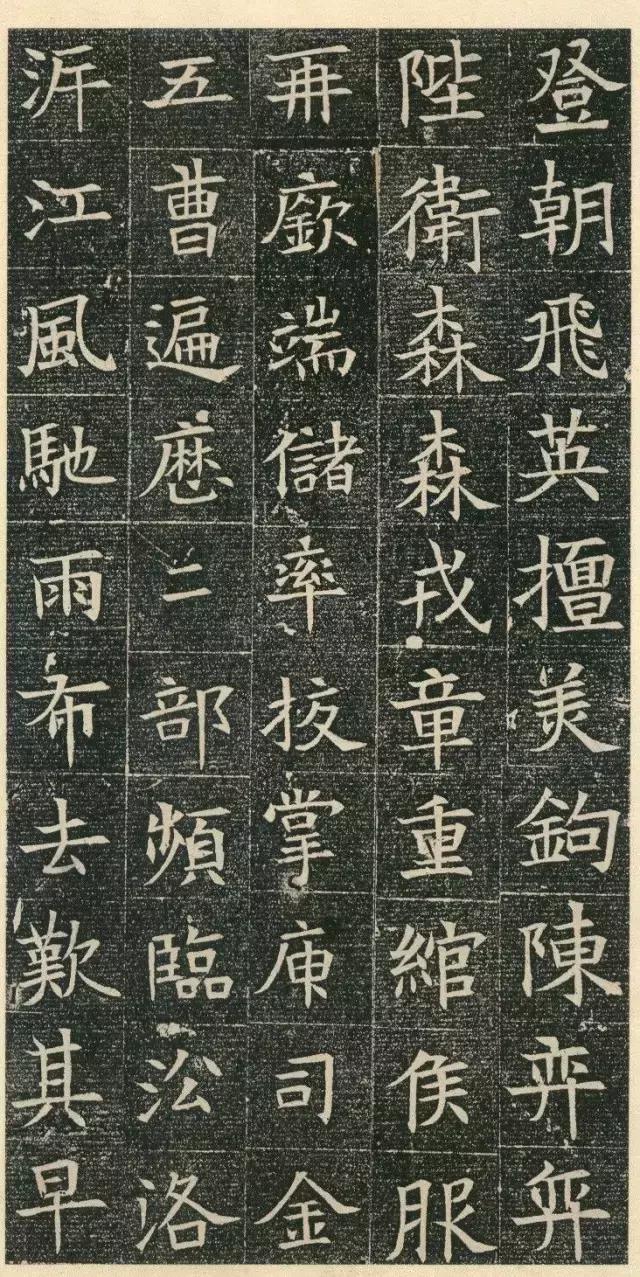 登朝飛英擅美鉤陳弈弈
陛衛森森戎章重綰侯服
再廞端儲率拔掌庫司金
五曹遍歷二部頻臨㳂洛
泝江風馳雨布去歎其早